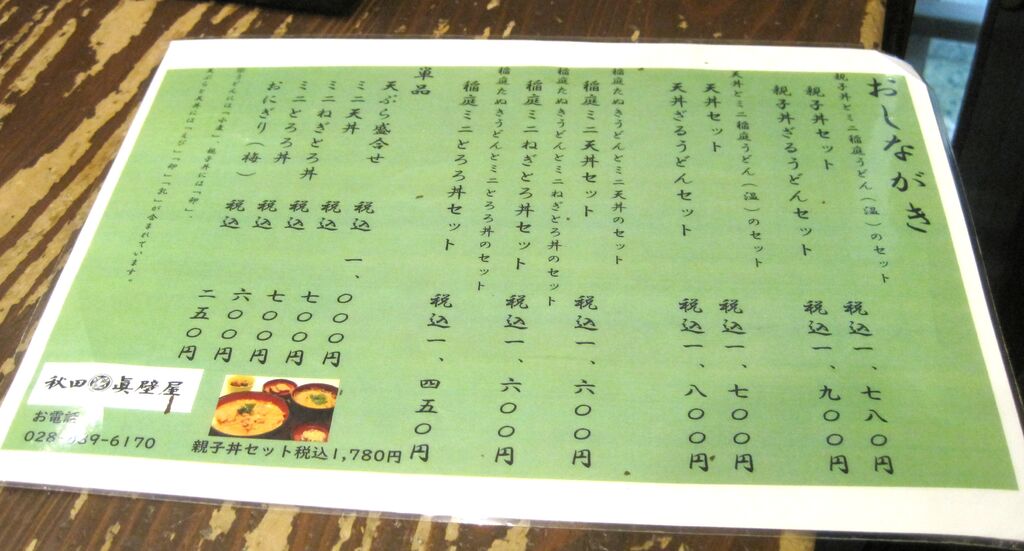 おしながき
親子丼とミニ稲庭うどん（温）のセット
親子丼セット 税込一、七八〇円
親子丼ざるうどんセット 税込一、九〇〇円
天丼とミニ稲庭うどん（温）のセット
天丼セット 税込一、七〇〇円
天丼ざるうどんセット 税込一、八〇〇円
稲庭たぬきうどんとミニ天丼のセット
稲庭ミニ天丼セット 税込一、六〇〇円
稲庭たぬきうどんとミニねぎとろ丼のセット
稲庭ミニねぎとろ丼セット 税込一、六〇〇円
稲庭たぬきうどんとミニとろろ丼のセット
稲庭ミニとろろ丼セット 税込一、四五〇円
単品
天ぷら盛合せ 税込一、〇〇〇円
ミニ天丼 税込 七〇〇円
ミニねぎとろ丼 税込 七〇〇円
ミニとろろ丼 税込 六〇〇円
おにぎり（梅） 税込 二五〇円
うどんには「小麦」、親子丼には「卵」、
天ぷらと天丼には「えび」「卵」「乳」が含まれています。
秋田 眞壁屋
お電話
028- 39-6170
親子丼セット税込1,780円